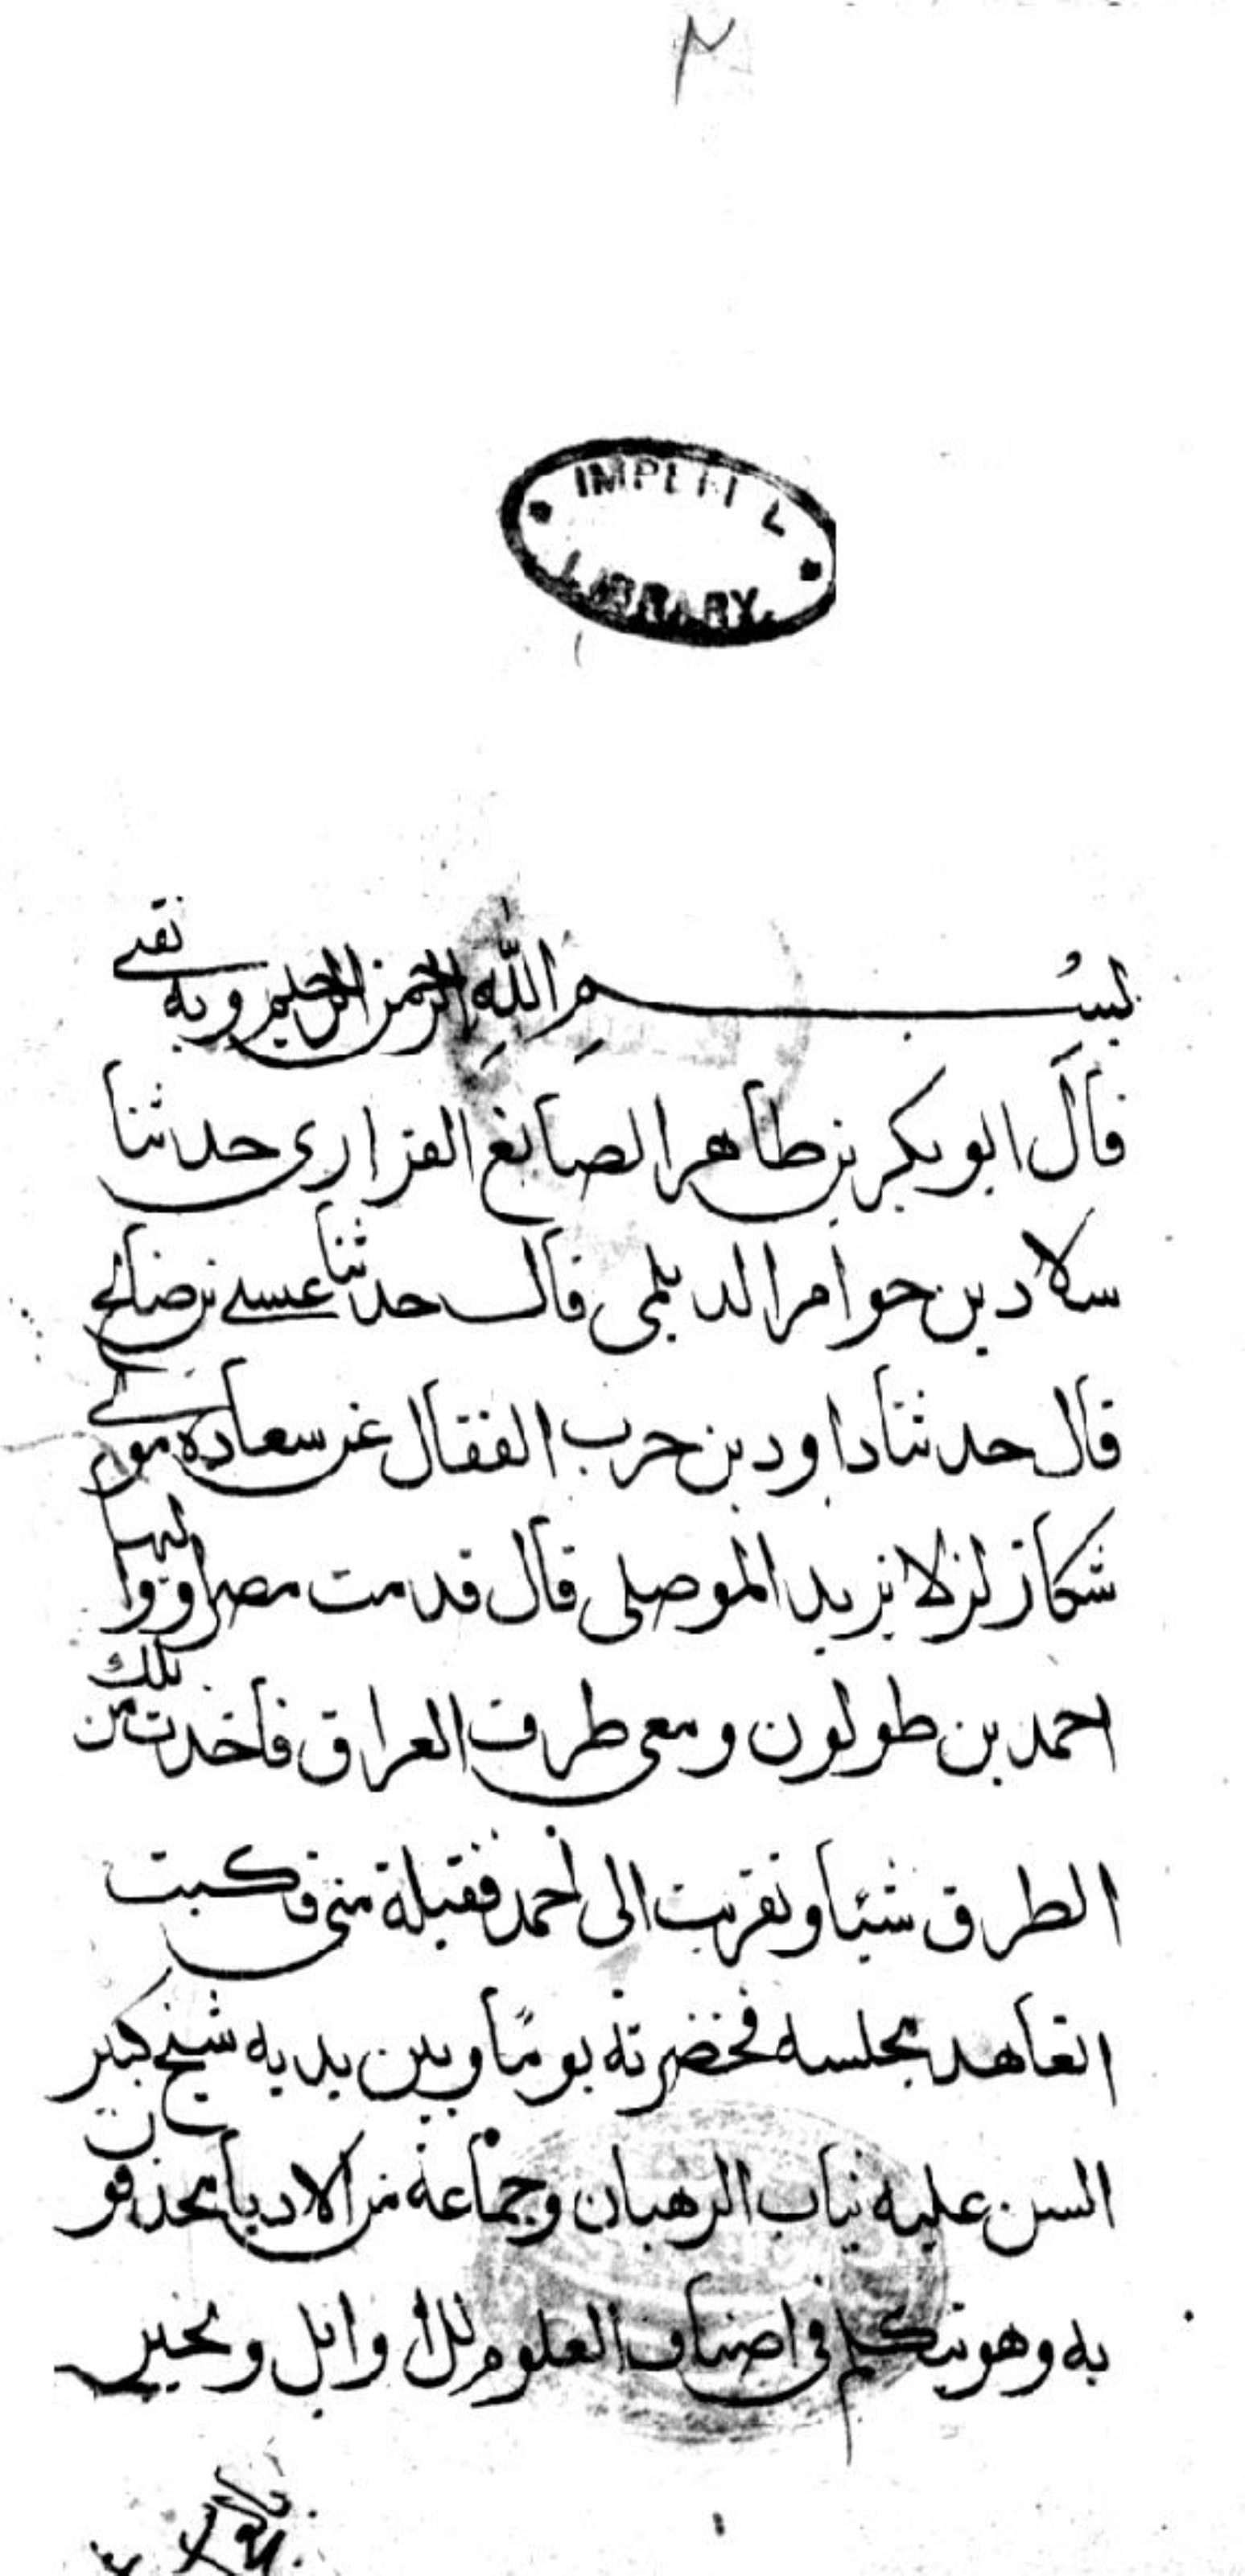 ٢
IMPERIAL
LIBRARY
بسم الله الرحمن الرحيم وبه ثقتي
قال ابو بكر بن طاهر الصائغ الفزاري حدثنا
سلاد بن حوامر الديلمي قال حدثنا عيسى بن صالح
قال حدثنا داود بن حرب القفال عن سعاده مولى
قال قدمت مصر وواليها
احمد بن طولون ومعي طرف العراق فاخذت من تلك
الطرق شيئا وتقربت الى احمد فقبلة مني فكسبت
اتعاهد مجلسه فحضرته يوما وبين يديه شيخ كبير
السن عليه ثياب الرهبان وجماعة من الادبا يحدقون
به وهو يتكلم في اصناف العلوم للاوايل ويخبر